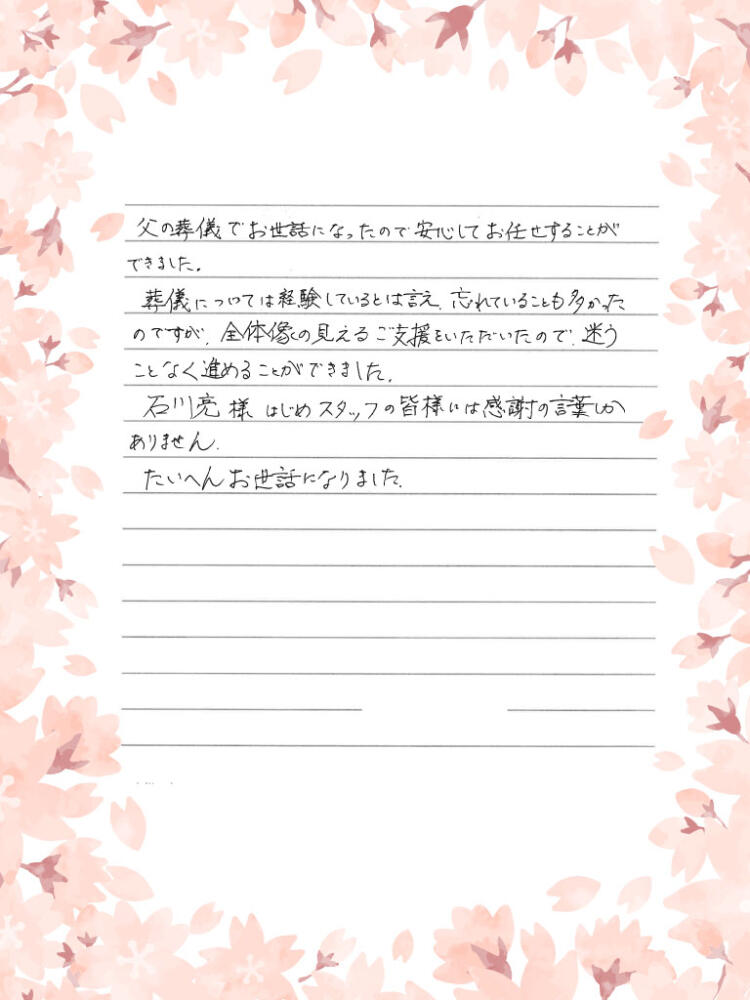 父の葬儀でお世話になったので安心してお任せすることが
できました。
葬儀については経験しているとは言え、忘れていることも多かった
のですが、全体像の見えるご支援をいただいたので、迷う
ことなく進めることができました。
石川亮様はじめスタッフの皆様には感謝の言葉しか
ありません。
たいへんお世話になりました。